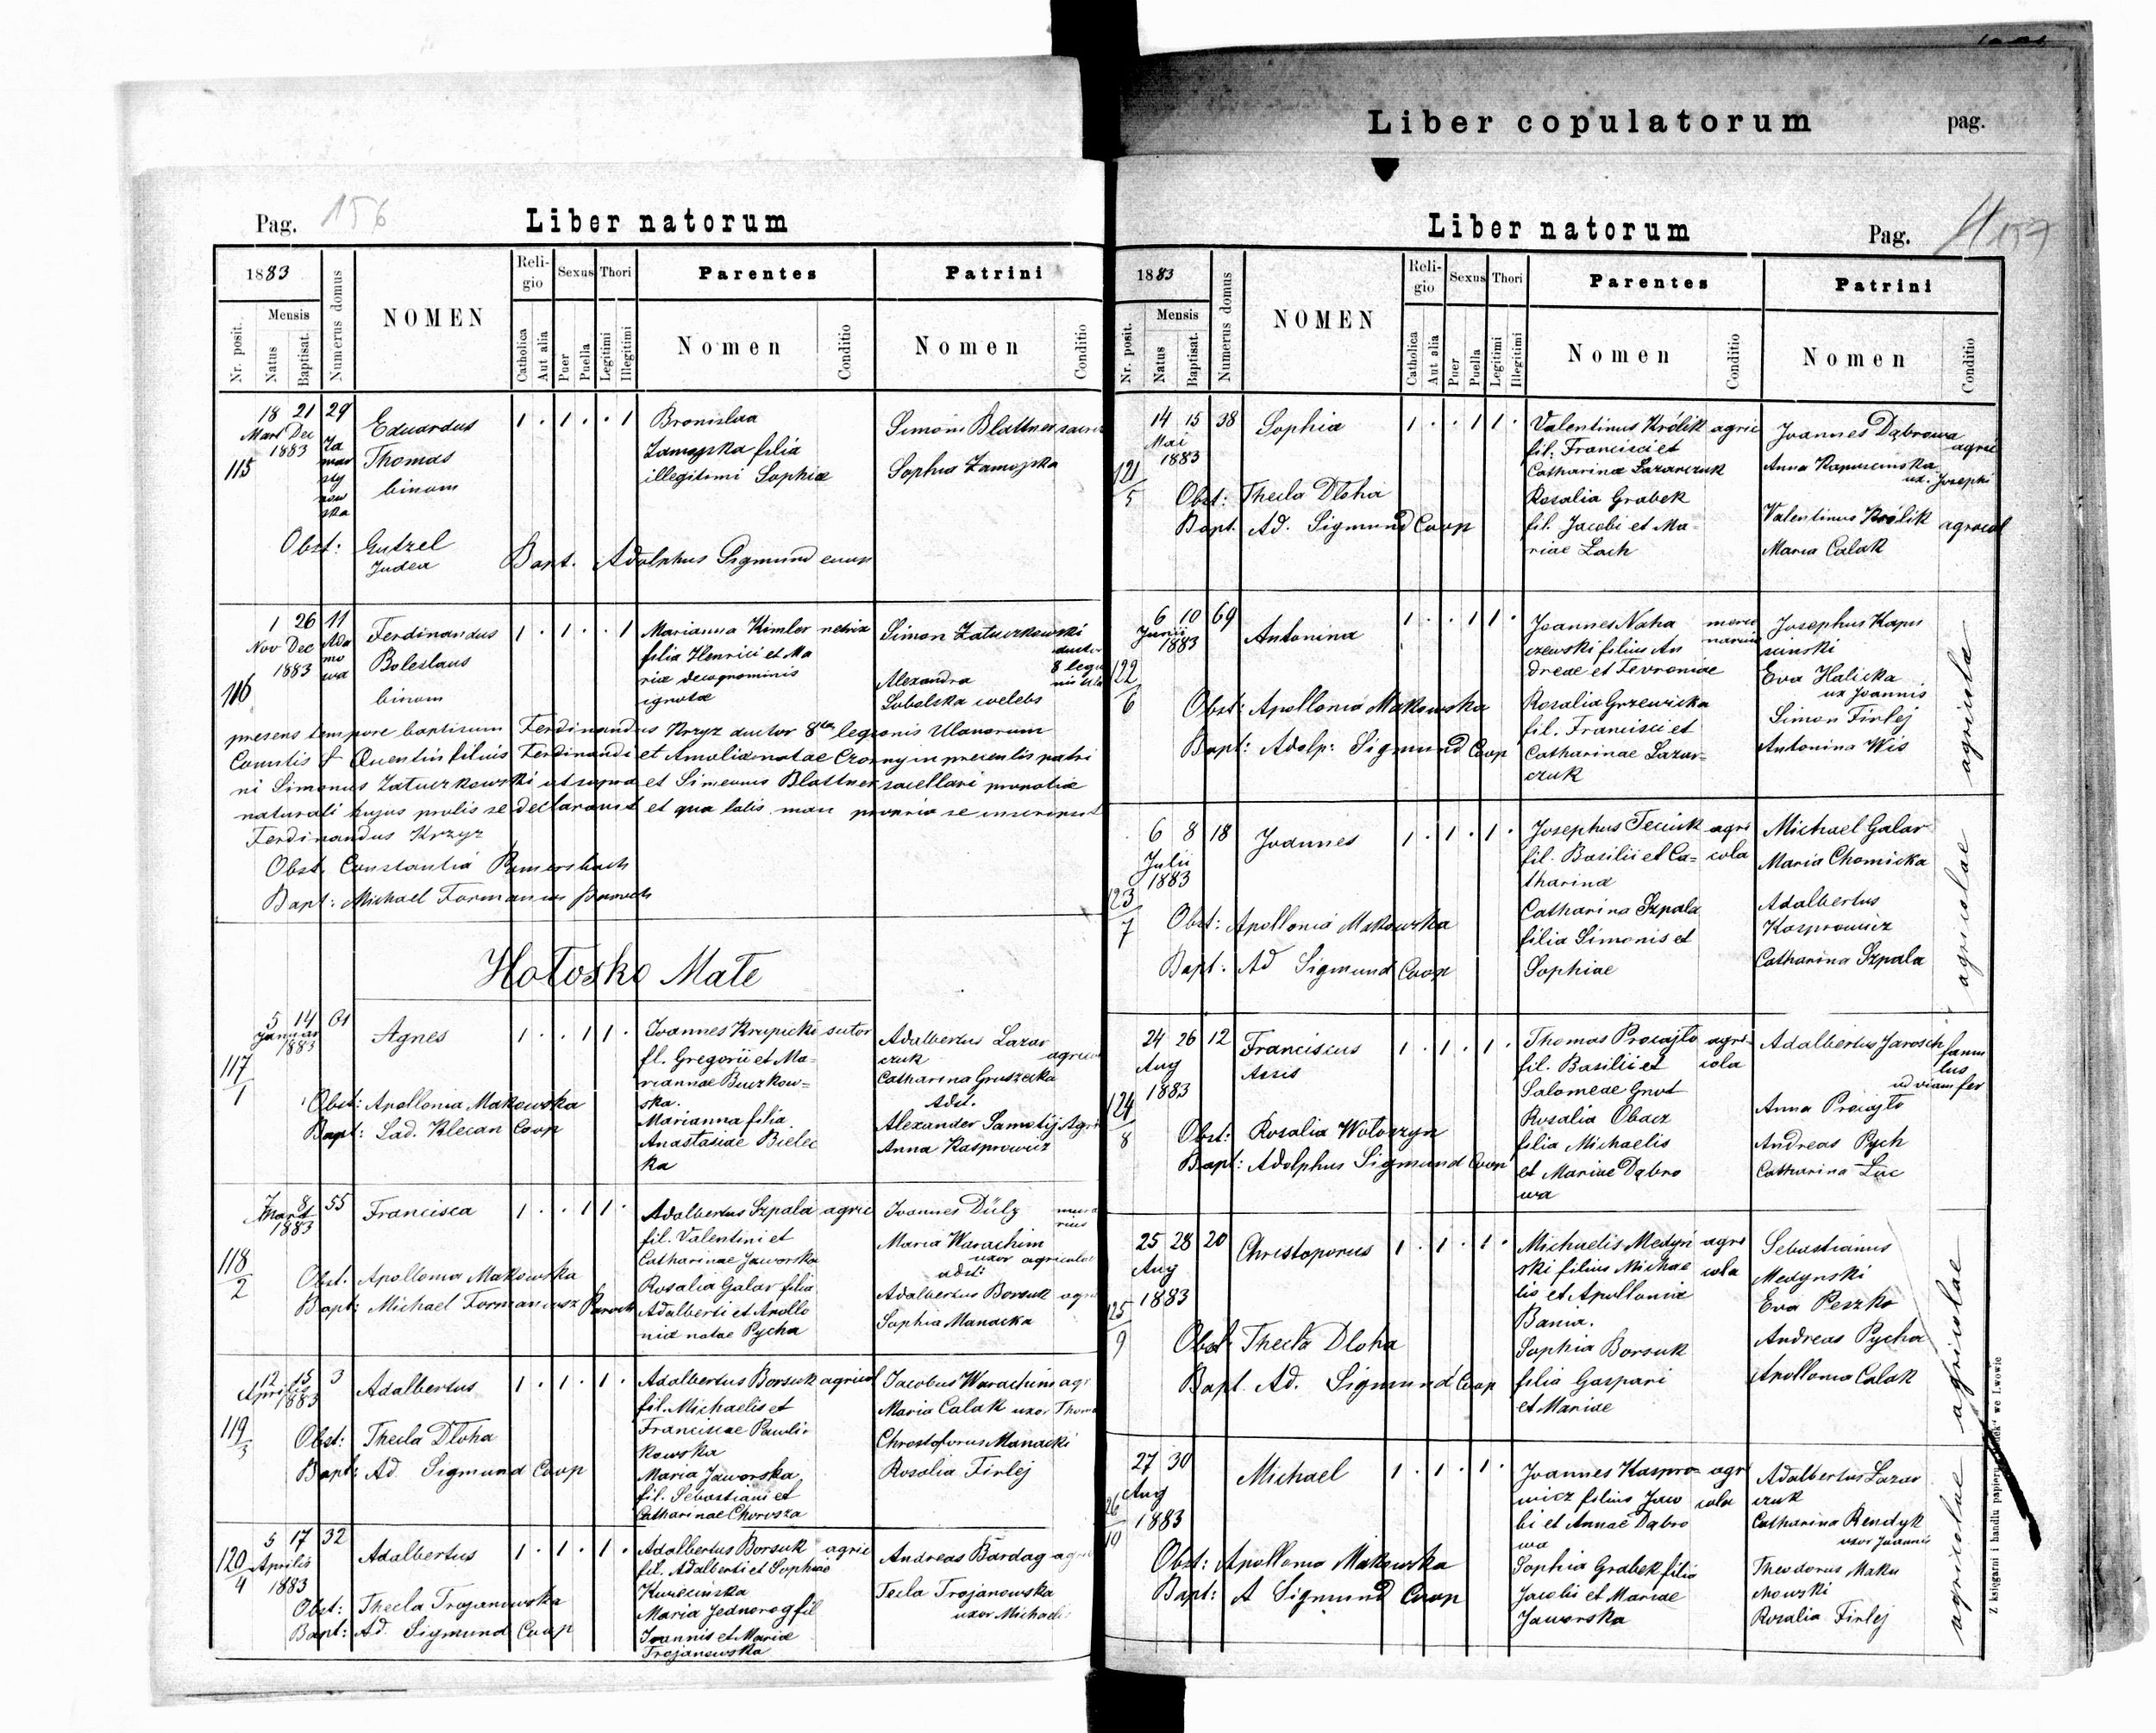 Liber copulatorum pag.
Pag. 156 Liber natorum
1883
Nr. posit.
Mensis
Natus
Baptisat.
Numerus domus
NOMEN
Religio
Catholica
Aut alia
Sexus
Puer
Puella
Thori
Legitimi
Illegitimi
Parentes
Nomen
Conditio
Patrini
Nomen
Conditio
115
18 21 29
Mart Dec
1883
Eduardus
Thomas
binom
1 . 1 . . 1
Bronislaa
Zamojska filia
illegitimi Sophiæ
Simon Blattner
Sophia Zamojska
Obst: Gutzel
Judea
Bapt. Adolphus Sigmund coop
116
1 26 11
Nov Dec
1883
Ferdinandus
Boleslaus
binom
1 . 1 . . 1
Marianna Kimler
filia Henrici et Ma
riæ de cognominis
ignotæ
Simon Zatuczkowski
Alexandra
Sobolska coelebs
presens tempore baptisum Ferdinandus Krzyz ductor 8 legionis Ulanorum
Comitis
filius Ferdinandi et Amalia natae
in presentis patri
ni Simonis Zatuczkowski ut supra et Simeonis Blattner
naturali hujus prolis se declaravit et qua talis manu propria se inscripsit
Ferdinandus Krzyz
Obst. Constantia
Bapt: Michael Formaniusz Paroch
Hołosko Małe
117
1
5 14 61
Januar
1883
Agnes
1 . . 1 1 .
Joannes Krupicki sutor
fl. Gregorii et Ma-
riannae Buczkow-
ska.
Marianna filia
Anastasiae Bielec
ka
Adalbertus Lazar
czuk
Catharina Gruszecka
Adst.
Alexander Samotij Agri
Anna Kasprowicz
Obst: Apollonia Makowska
Bapt: Lad. Klecan Coop
118
2
7 8 55
Mart
1883
Francisca
1 . . 1 1 .
Adalbertus Szpala agric
fil. Valentini et
Catharinae Jaworska
Rosalia Galar filia
Adalberti et Apollo
niæ natae Pycha
Joannes Dülz
Maria Warachim
uxor agricolae
adst:
Adalbertus Borsuk
Sophia Manacka
Obst. Apollonia Makowska
Bapt: Michael Formaniusz Paroch
119
3
12 15 3
Aprilis
1883
Adalbertus
1 . 1 . 1 .
Adalbertus Borsuk agricol
fil. Michaelis et
Franciscae Pawli-
kowska
Maria Jaworska
fil. Sebastiani et
Catharinae Chorosza
Jacobus Warachim agr
Maria Calak uxor Thoma
Christoforus Manacki
Rosalia Firlej
Obst: Thecla Dloha
Bapt: Ad. Sigmund Coop
120
4
5 17 32
Aprilis
1883
Adalbertus
1 . 1 . 1 .
Adalbertus Borsuk agric
fil. Adalberti et Sophiae
Maria Jednorog fil
Joannis et Mariæ
Trojanowska
Andreas Bardag
Tecla Trojanowska
uxor Michaeli
Obst: Thecla Trojanowska
Bapt: Ad. Sigmund Coop
Liber natorum Pag. 157
1883
Nr. posit.
Mensis
Natus
Baptisat.
Numerus domus
NOMEN
Religio
Catholica
Aut alia
Sexus
Puer
Puella
Thori
Legitimi
Illegitimi
Parentes
Nomen
Conditio
Patrini
Nomen
Conditio
121
5
14 15 38
Mai
1883
Sophia
1 . . 1 1 .
Valentinus Królik agric
fil. Francisci et
Catharinæ Lazarczuk
Rosalia Grabek
fil. Jacobi et Ma-
riae Lach
Joannes Dąbrowa
agric
Anna Kapuscinska
ux. Josephi
Valentinus Królik agricol
Maria Calak
Obst: Thecla Dloha
Bapt. Ad. Sigmund Coop
122
6
6 10 69
Junii
1883
Antonina
1 . . 1 1 .
Joannes Naha
czewski filius An
dreae et Fevroniae
Rosalia Grzewicka
fil. Francisci et
Catharinae Lazar-
czuk
Josephus Kapu
scinski
Eva Halicka
ux Joannis
Simon Firlej
Antonina Wis
agricolæ
Obst: Apollonia Makowska
Bapt: Adolp: Sigmund Coop
123
7
6 8 18
Julii
1883
Joannes
1 . 1 . 1 .
Josephus Teciuk agri
fil. Basilii et Ca- cola
tharinæ
Catharina Szpala
filia Simonis et
Sophiae
Michael Galar
Maria Chomicka
Adalbertus
Kasprowicz
Catharina Szpala
agricolae
Obst: Apollonia Makowska
Bapt. Ad Sigmund Coop
124
8
24 26 12
Aug
1883
Franciscus
Assis
1 . 1 . 1 .
Thomas Procajlo agri-
fil. Basilii et cola
Salomeae Gnot
Rosalia Obacz
filia Michaelis
et Mariae Dąbro
wa
Adalbertus Jarosch famu
lus
ad viam fer
Anna Procajlo
Andreas Pych
Catharina Luc
Obst: Rosalia Woloszyn
Bapt: Adolphus Sigmund Coop
125
9
25 28 20
Aug
1883
Christoporus
1 . 1 . 1 .
Michaelis Medyń agri
ski filius Michae cola
lis et Apolloniæ
Bania.
Sophia Borsuk
filia Gaspari
et Mariae
Sebastianus
Medynski
Eva Peszko
Andreas Pycha
Apollonia Calak
agricolae
Obst: Thecla Dloha
Bapt. Ad. Sigmund Coop
126
10
27 30
Aug
1883
Michael
1 . 1 . 1 .
Joannes Kaspro- agri
wicz filius Jaco cola
bi et Annae Dąbro
wa
Sophia Grabek filia
Jacobi et Mariae
Jaworska
Adalbertus Lazar
czuk
Catharina Rendyk
uxor Joannis
Theodorus Maku
chowski
Rosalia Firlej
agricolae
Obst: Apollonia Makowska
Bapt: A Sigmund Coop